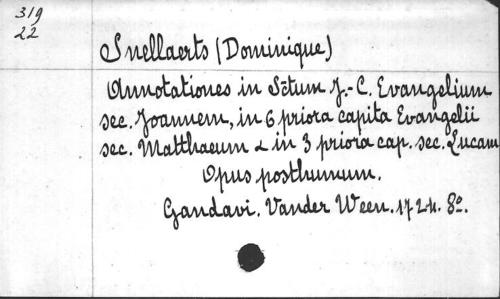 319
22
Snellaerts (Dominique)
Annotationes in S-tum J.-C. Evangelium
sec. Joannem, in 6 priora capita Evangelii
sec. Matthaeum & in 3 priora cap. sec. Lucam
Opus posthumum.
Gandavi. Vander Ween. 1724. 8o.